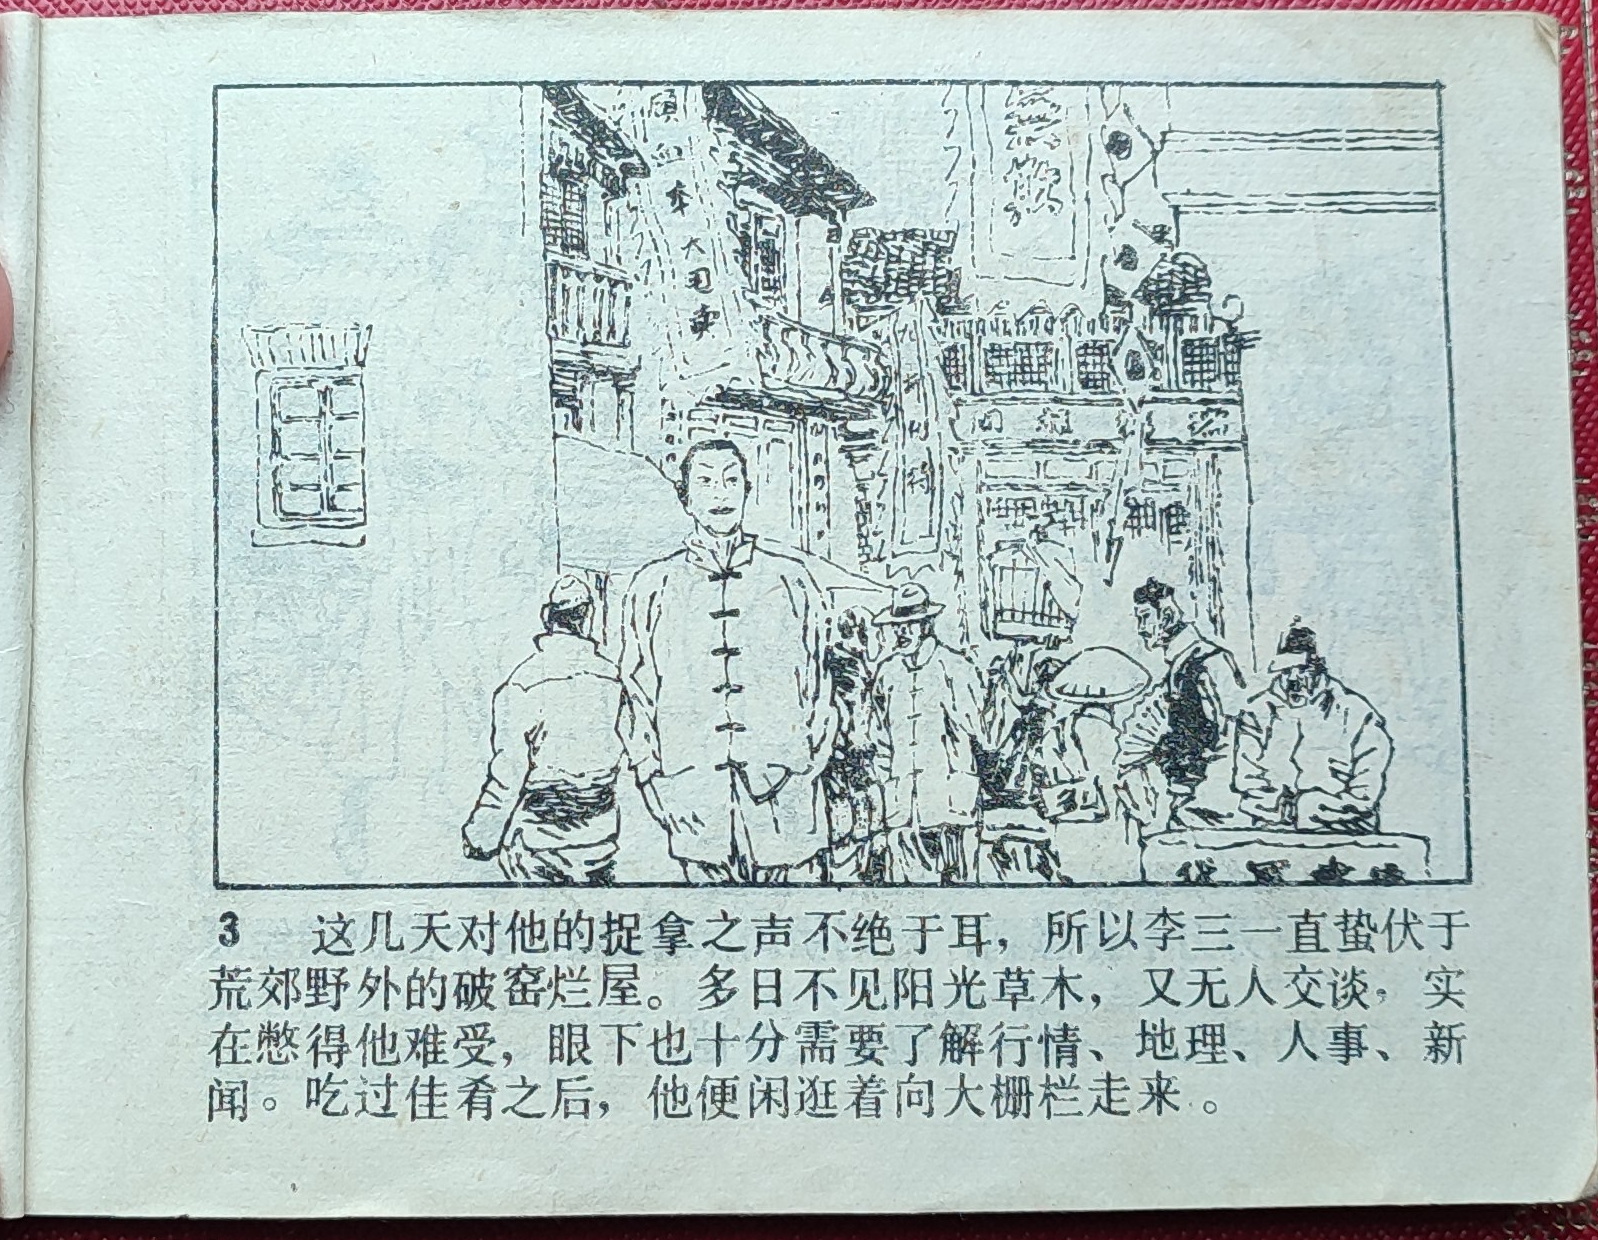 大
3 这几天对他的捉拿之声不绝于耳，所以李三一直蛰伏于
荒郊野外的破窑烂屋。多日不见阳光草木，又无人交谈，实
在憋得他难受，眼下也十分需要了解行情、地理、人事、新
闻。吃过佳肴之后，他便闲逛着向大栅栏走来。